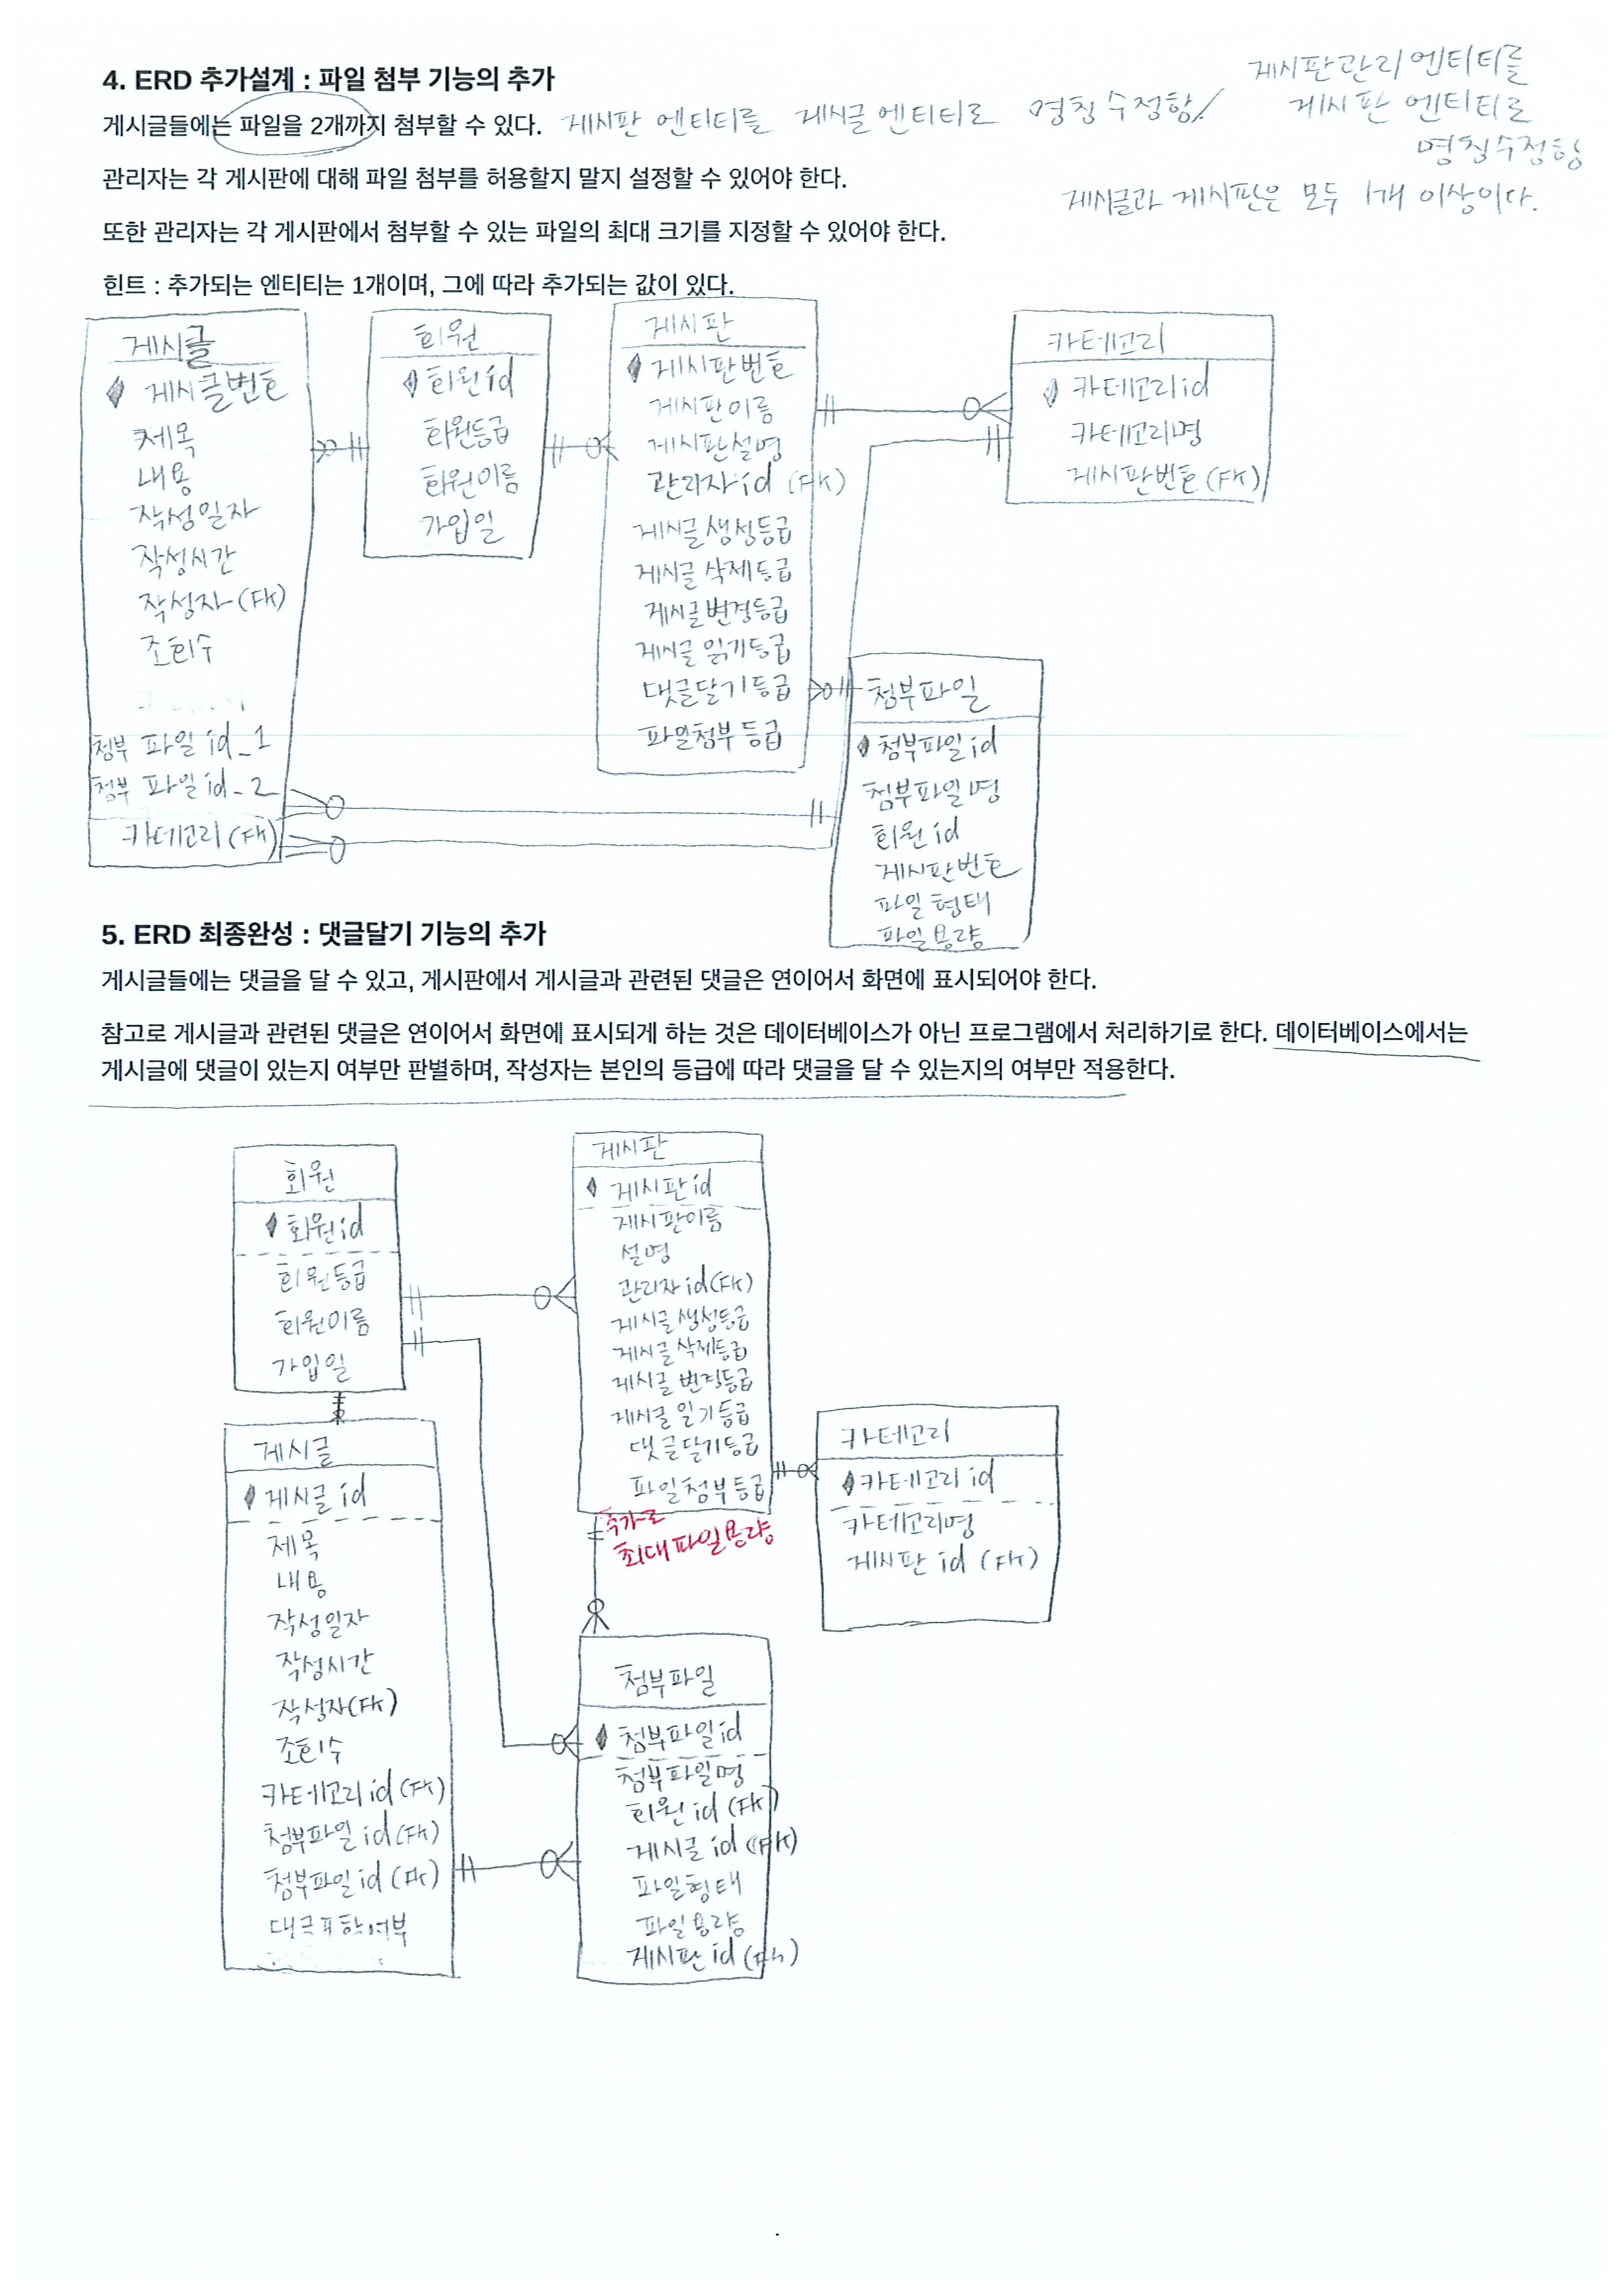 4. ERD 추가설계 : 파일 첨부 기능의 추가
게시판관리 엔티티를
게시판 엔티티로
명칭수정함
게시글들에는 파일을 2개까지 첨부할 수 있다. 게시판 엔티티를 게시글 엔티티로 명칭수정함/
관리자는 각 게시판에 대해 파일 첨부를 허용할지 말지 설정할 수 있어야 한다.
게시글과 게시판은 모두 1개 이상이다.
또한 관리자는 각 게시판에서 첨부할 수 있는 파일의 최대 크기를 지정할 수 있어야 한다.
힌트 : 추가되는 엔티티는 1개이며, 그에 따라 추가되는 값이 있다.
게시글
게시글번호
제목
내용
작성일자
작성시간
작성자(FK)
조회수
첨부 파일 id_1
첨부 파일 id_2
카테고리(FK)
회원
회원id
회원등급
회원이름
가입일
게시판
게시판번호
게시판이름
게시판설명
관리자id (FK)
게시글생성등급
게시글삭제등급
게시글변경등급
게시글 읽기등급
댓글달기등급
파일첨부등급
카테고리
카테고리id
카테고리명
게시판번호(FK)
첨부파일
첨부파일id
첨부파일명
회원id
게시판번호
파일형태
파일용량
5. ERD 최종완성 : 댓글달기 기능의 추가
게시글들에는 댓글을 달 수 있고, 게시판에서 게시글과 관련된 댓글은 연이어서 화면에 표시되어야 한다.
참고로 게시글과 관련된 댓글은 연이어서 화면에 표시되게 하는 것은 데이터베이스가 아닌 프로그램에서 처리하기로 한다. 데이터베이스에서는
게시글에 댓글이 있는지 여부만 판별하며, 작성자는 본인의 등급에 따라 댓글을 달 수 있는지의 여부만 적용한다.
회원
회원id
회원등급
회원이름
가입일
게시판
게시판id
게시판이름
설명
관리자id(FK)
게시글생성등급
게시글삭제등급
게시글변경등급
게시글읽기등급
댓글달기등급
파일첨부등급
추가로
최대파일용량
카테고리
카테고리id
카테고리명
게시판 id (FK)
게시글
게시글id
제목
내용
작성일자
작성시간
작성자(FK)
조회수
카테고리id(FK)
첨부파일id(FK)
첨부파일id(FK)
댓글포함여부
첨부파일
첨부파일id
첨부파일명
회원id (FK)
게시글id (FK)
파일형태
파일용량
게시판id(FK)